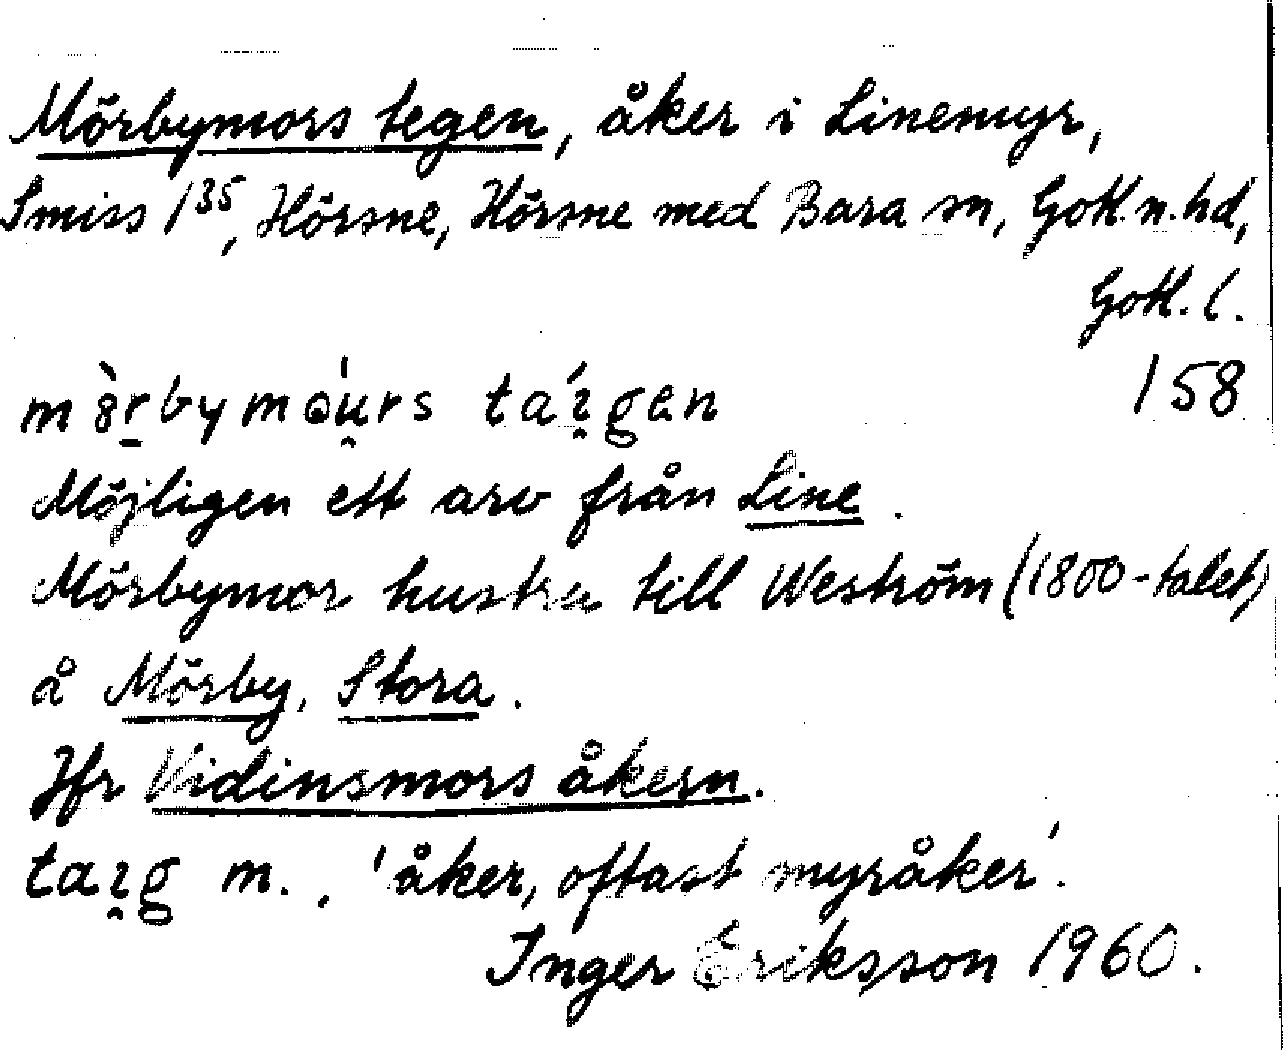 Mörbymors tegen, åker i Linemyr,
Smiss 1³⁵, Hörsne, Hörsne med Bara sn, Gotl. n. hd,
Gotl. l.
158
Möjligen ett arv från Line.
Mörbymor hustru till Weström (1800-talet)
å Mörby, Stora.
Jfr Vidinsmors åkern.
m., 'åker, oftast myråker'.
Inger Eriksson 1960.